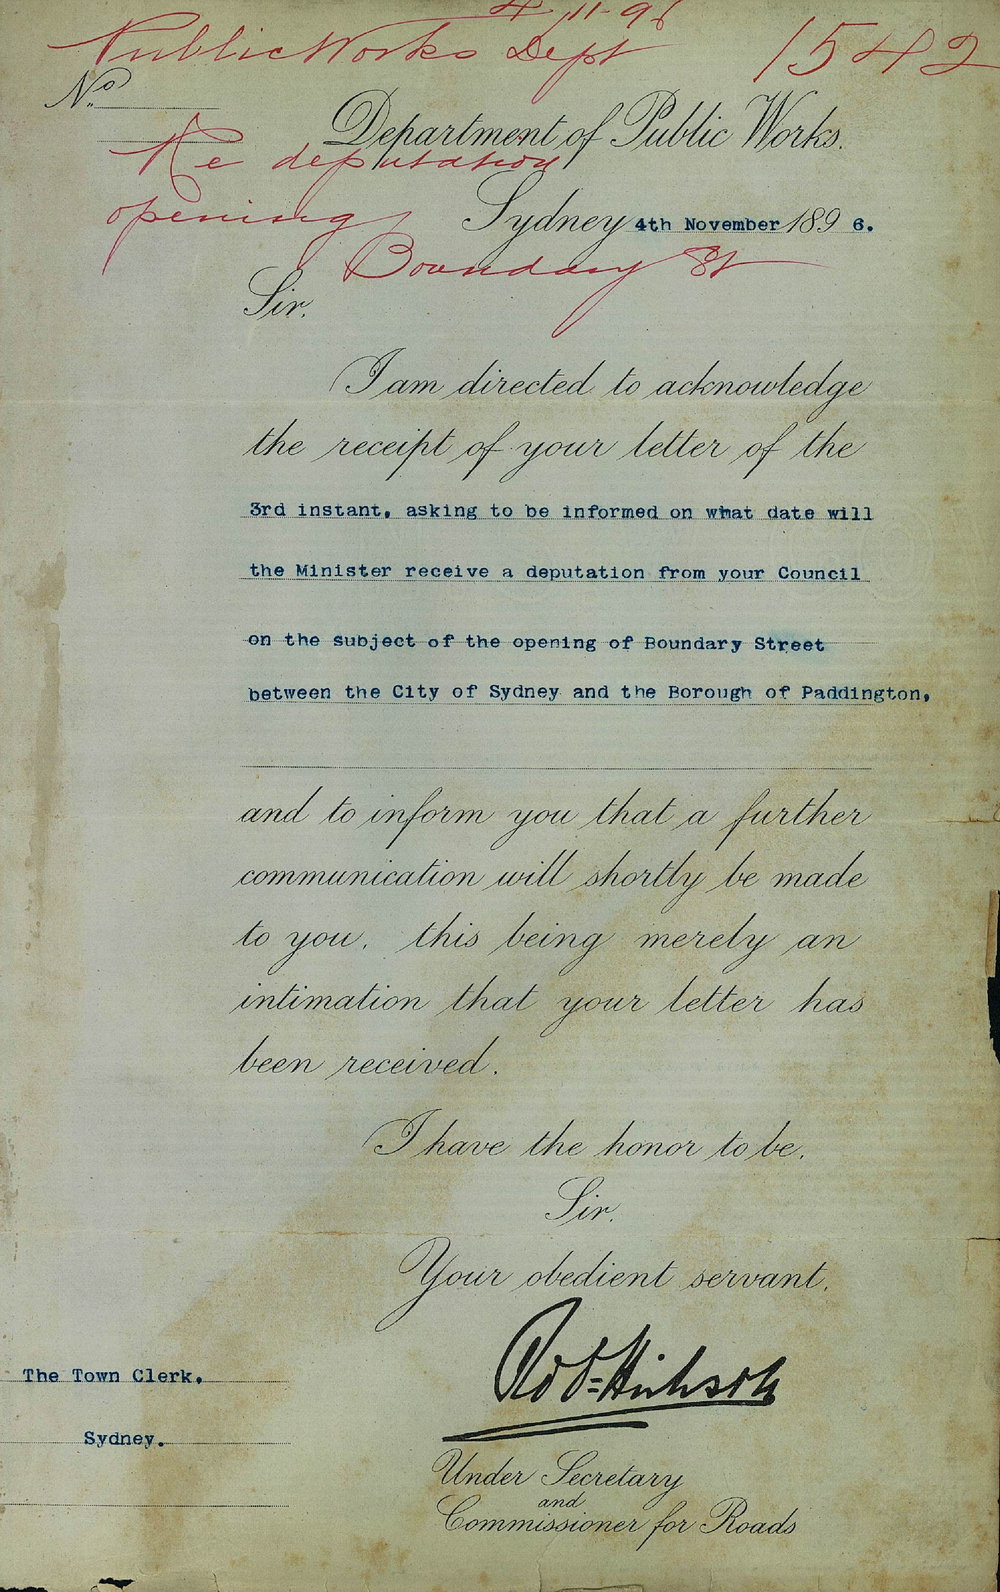 4.11.96
Public Works Dept 1542
No.
Department of Public Works.
Re deputation
opening
Sydney 4th November 1896.
Boundary St
Sir,
I am directed to acknowledge
the receipt of your letter of the
3rd instant, asking to be informed on what date will
the Minister receive a deputation from your Council
on the subject of the opening of Boundary Street
between the City of Sydney and the Borough of Paddington,
and to inform you that a further
communication will shortly be made
to you, this being merely an
intimation that your letter has
been received.
I have the honor to be,
Sir,
Your obedient servant,
The Town Clerk,
Sydney.
Under Secretary
and
Commissioner for Roads